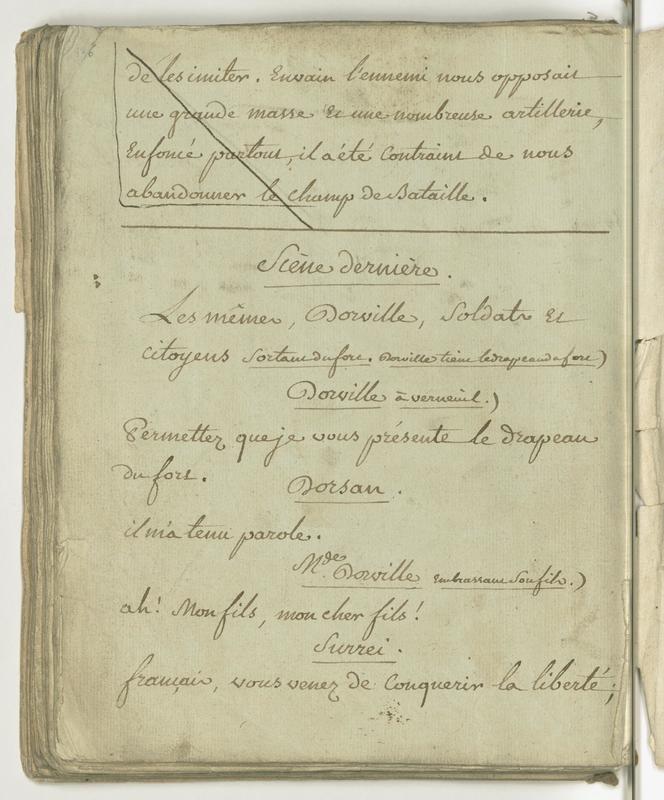 de les imiter. Envain l'ennemi nous opposait
une grande masse Et une nombreuse artillerie,
Enfoncé partout, il a été Contraint de nous
abandonner le Champ de Bataille.
Scène dernière.
Les mêmes, Dorville, Soldats Et
Citoyens Sortant du fort. Dorville tient le drapeau du fort)
Dorville à verneuil.)
Permettez que je vous présente le drapeau
du fort.
Dorsan.
il m'a tenu parole.
Mde Dorville Embrassant Son fils.)
ah! Mon fils, mon cher fils!
Surrei.
français, vous venez de Conquerir la liberté;